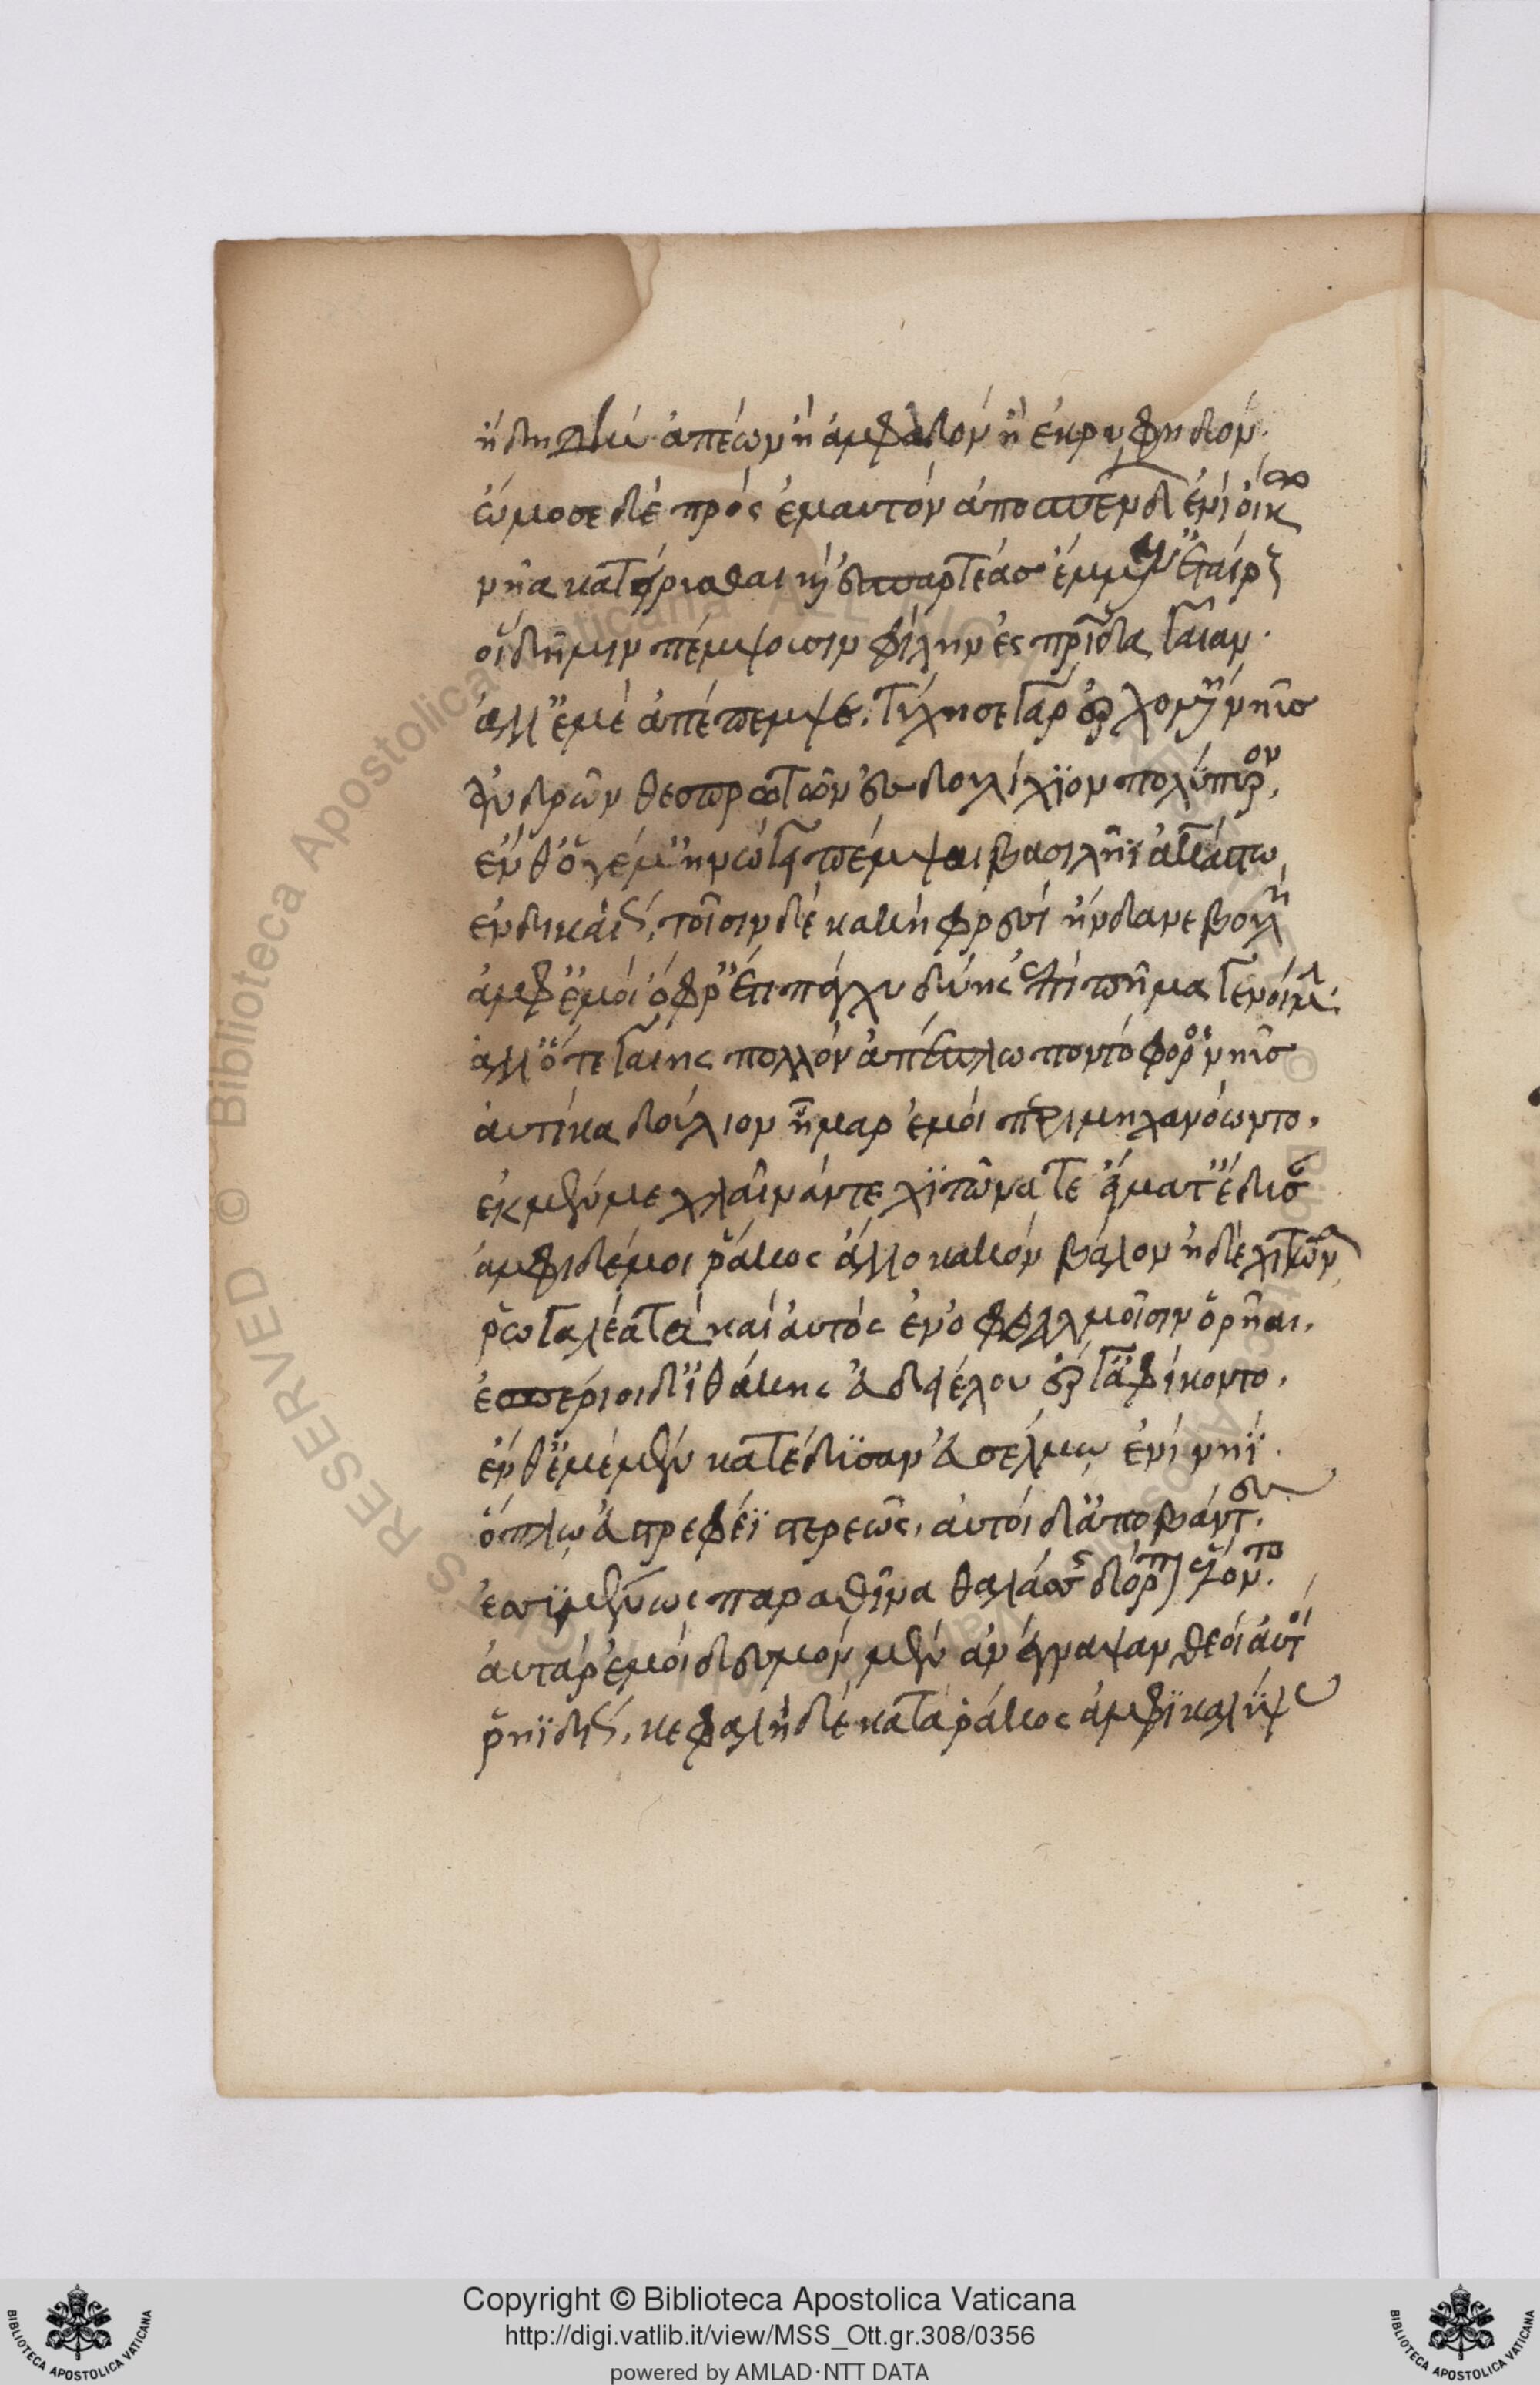 ἤδη δὴν ἀπεὼν ἢ ἀμφαδὸν ἠὲ κρυφηδόν.
ὤμοσε δὲ πρὸς ἐμαυτὸν ἀποσπένδων ἐνὶ οἴκω
νῆα κατειρύσθαι καὶ ἐπαρτέας ἔμμεν ἑταίρους
οἳ δή μιν πέμψουσιν φίλην ἐς πατρίδα γαῖαν.
ἀλλ' ἐμὲ ἀπέπεμψε. τύχησε γὰρ ἐρχομένη νηῦς
ἀνδρῶν θεσπρωτῶν ἐς δουλίχιον πολύπυρον,
ἔνθ' ὅγέ μ' ἠνώγει πέμψαι βασιλῆϊ ἀκάστω
ἐνδυκέως, τοῖσιν δὲ κακὴ φρεσὶ ἥνδανε βουλὴ
ἀμφ' ἐμοὶ ὄφρ' ἔτι πάγχυ δύης ἐπὶ πῆμα γενοίμην.
ἀλλ' ὅτε γαίης πολλὸν ἀπέπλω ποντοπόρος νηῦς
αὐτίκα δούλιον ἦμαρ ἐμοὶ περιμηχανόωντο.
ἐκ μέν με χλαῖνάν τε χϊτῶνά τε εἵματ' ἔδυσαν
ἀμφὶ δέ μοι ῥάκος ἄλλο κακὸν βάλον ἠδὲ χιτῶνα
ῥωγαλέα τὰ καὶ αὐτὸς ἐν ὀφθαλμοῖσιν ὅρηαι.
ἑσπέριοι δ' ἰθάκης εὐδειέλου ἔργ' ἀφίκοντο.
ἔνθ' ἐμὲ μὲν κατέδησαν ἐϋσέλμω ἐνὶ νηῒ.
ὅπλω ἐϋστρεφέϊ στερεῶς, αὐτοὶ δ' ἀποβάντες.
ἐσσυμένως παρὰ θῖνα θαλάσσης δόρπον ἕλοντο.
αὐτὰρ ἐμοὶ δεσμὸν μὲν ἀνέγναμψαν θεοὶ αὐτοὶ
ῥηϊδίως, κεφαλῆ δὲ κατὰ ῥάκος ἀμφικαλύψας
Copyright © Biblioteca Apostolica Vaticana
http://digi.vatlib.it/view/MSS_Ott.gr.308/0356
powered by AMLAD·NTT DATA